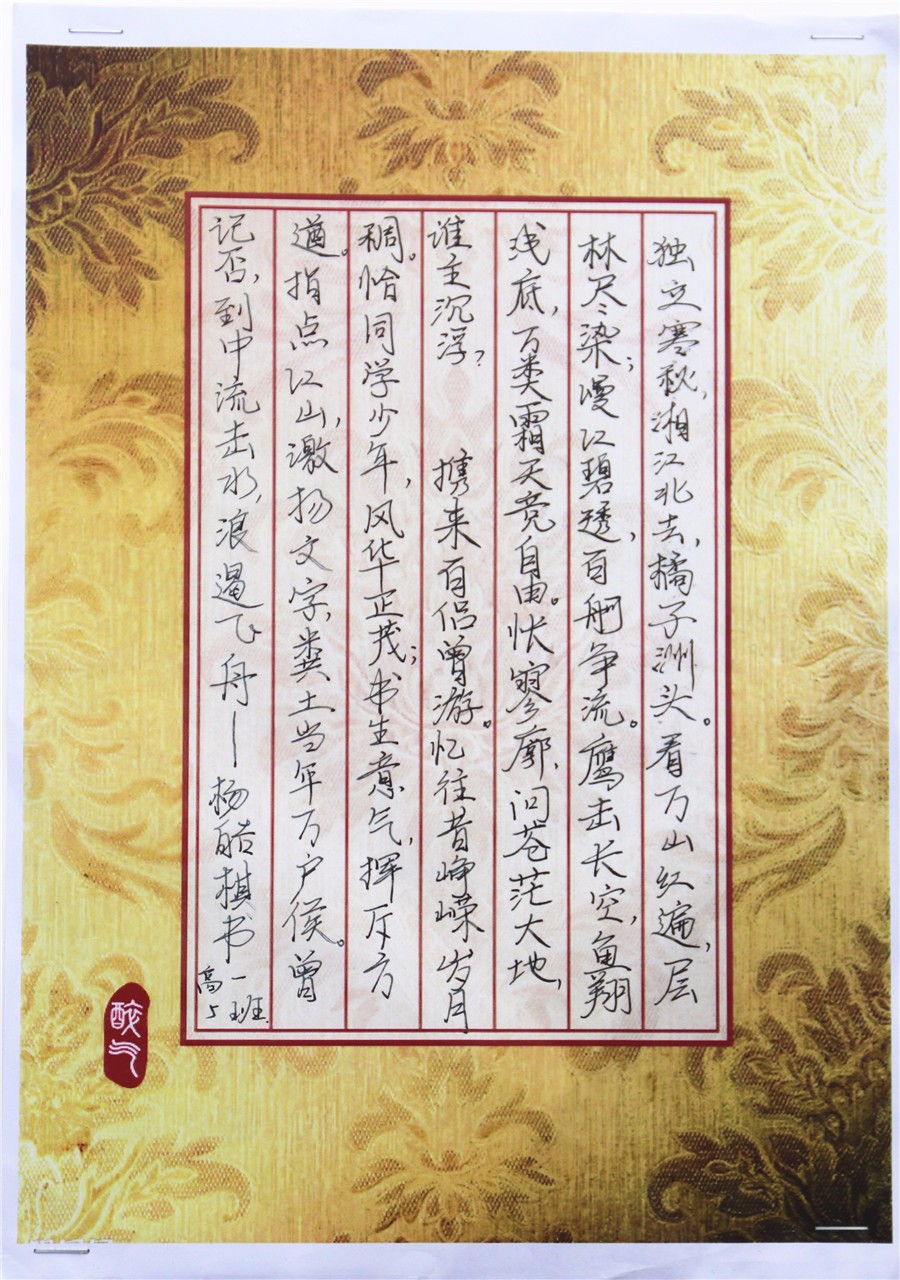 独立寒秋，湘江北去，橘子洲头。看万山红遍，层
林尽染；漫江碧透，百舸争流。鹰击长空，鱼翔
浅底，万类霜天竞自由。怅寥廓，问苍茫大地，
谁主沉浮？　携来百侣曾游。忆往昔峥嵘岁月
稠。恰同学少年，风华正茂；书生意气，挥斥方
遒。指点江山，激扬文字，粪土当年万户侯。曾
记否，到中流击水，浪遏飞舟—杨酷棋书
高一
5班